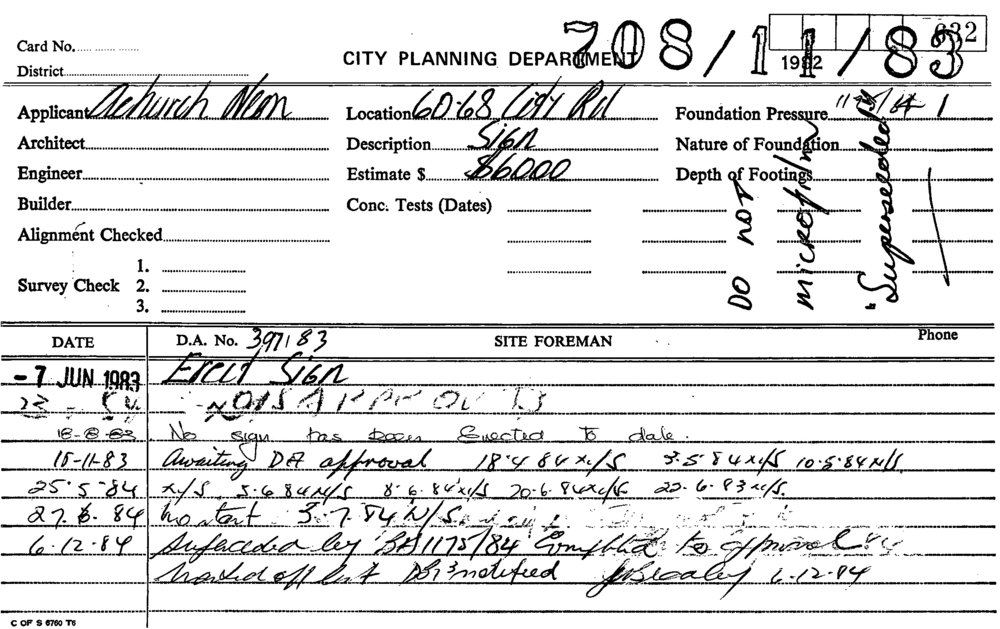 Card No.
CITY PLANNING DEPARTMENT 708/11/83
District
Applicant Achurch Neon Location 60-68 City Rd Foundation Pressure
Architect Description Sign Nature of Foundation
Engineer Estimate $ $6000 Depth of Footings
Builder Conc. Tests (Dates)
Alignment Checked
1.
Survey Check 2.
3.
DO NOT
microfilm
"Superseeded"
DATE D.A. No. 397/83 SITE FOREMAN Phone
-7 JUN 1983 Erect Sign
DISAPPROVED
18-8-83 No sign has been Erected to date.
15-11-83 Awaiting DA approval 18.4.84 N/S 3.5.84 N/S 10.5.84 N/S.
25.5.84 N/S 5.6.84 N/S 8.6.84 N/S 20.6.84 N/S 22.6.83 N/S.
27.6.84 No start 3.7.84 N/S
6.12.84 Surfaceded by BA1175/84 Completed to approval
Marked off list notified 6.12.84
C OF S 6760 T6